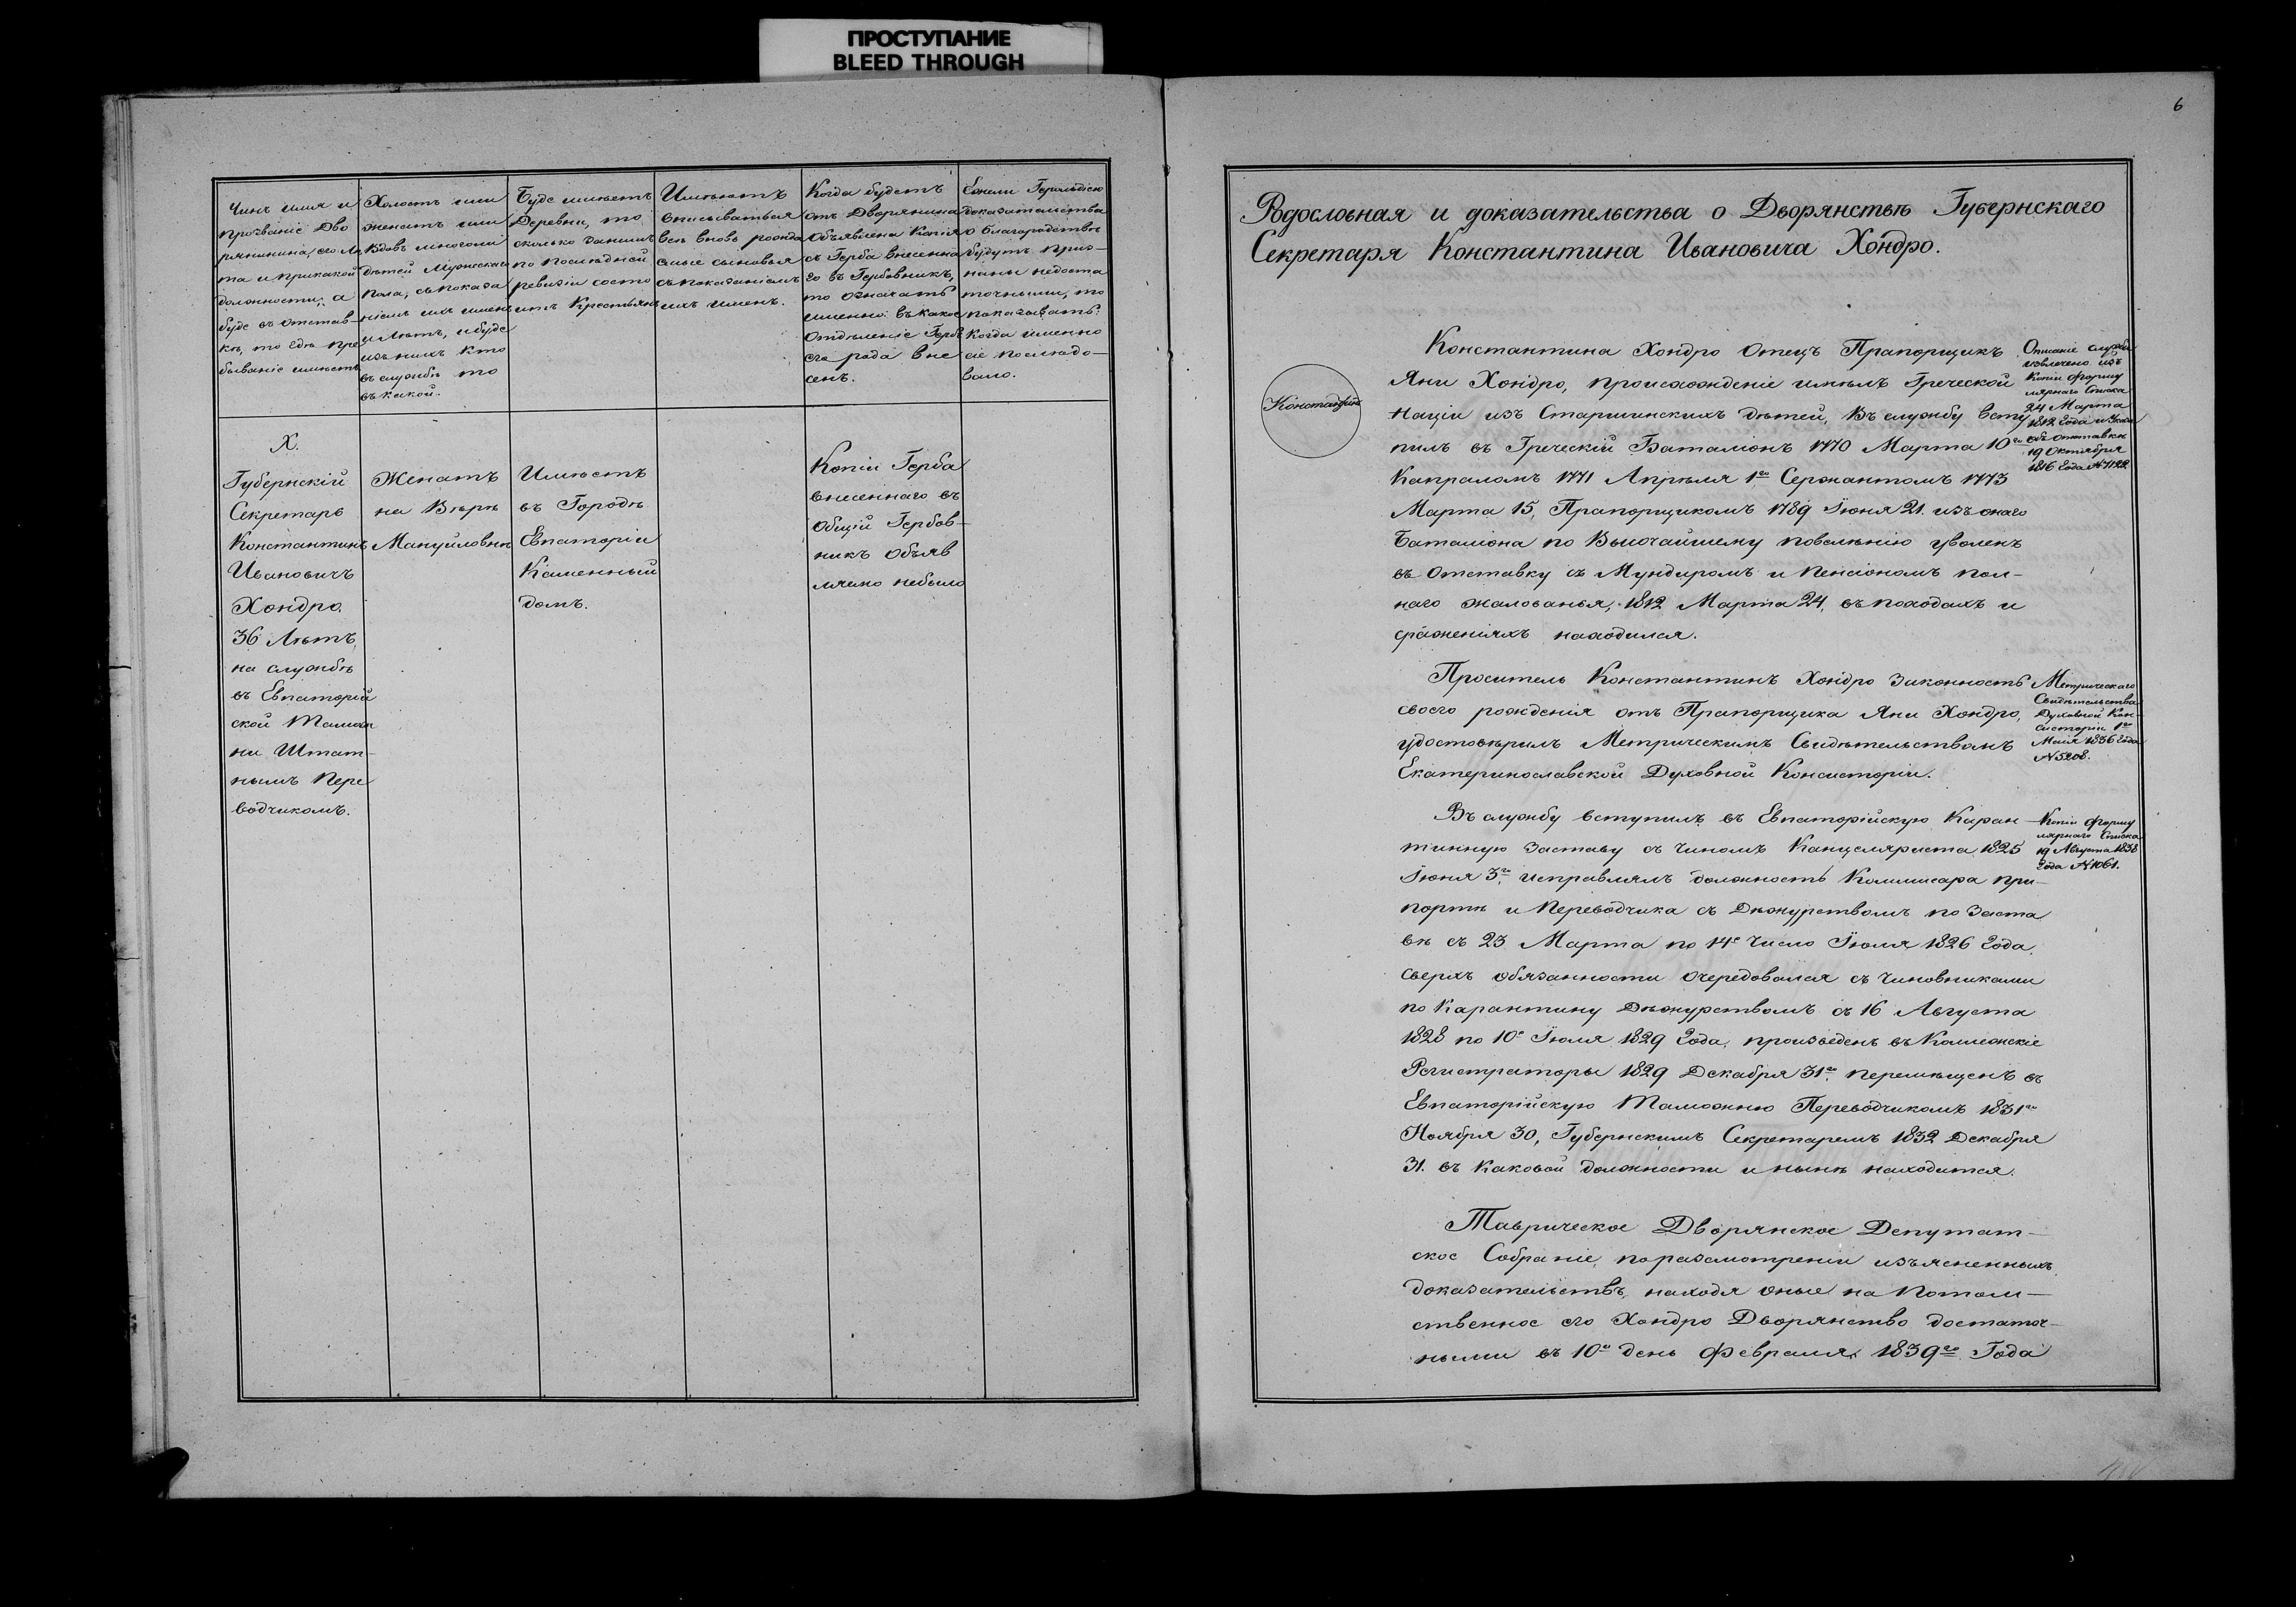 ПРОСТУПАНИЕ
BLEED THROUGH
Чинъ имя и
прозваніе Дво
рянинина, его Лѣ
та и при какой
должности; а
буде въ отстав-
кѣ, то гдѣ пре
бываніе имѣетъ
Холостъ или
женатъ или
Вдовъ многоли
дѣтей Мужескаго
пола, съ показа
ніемъ ихъ именъ
и Лѣтъ, и буде
изъ нихъ кто
въ службѣ то
въ какой.
Буде имѣетъ
Деревни, то
сколько за нимъ
по послѣдней
ревизіи состо
итъ Крестьянъ
Имѣютъ
вписываться
всѣ вновь рожда
емые сыновья
съ показаніемъ
ихъ именъ.
Когда будетъ
отъ Дворянина
Объявлена Копія
съ Герба внесенна
го въ Гербовникъ,
то означать
именно въ какое
Отдѣленіе Гербъ
его рода вне
сенъ.
Ежели Герольдіею
доказательства
о благородствѣ
будутъ приз-
наны недоста
точными, то
показывать:
Когда именно
сіе послѣдо-
вало.
Х.
Губернскій
Секретарь
Константинъ
Ивановичъ
Хондро.
36 Лѣтъ,
на службѣ
въ Евпаторій
ской Таможн
ни Штат-
нымъ Пере
водчикомъ.
Женатъ
на Вѣрѣ
Мануйловнѣ
Имѣетъ
въ Городѣ
Евпаторіи
Каменный
домъ.
Копіи Герба
внесеннаго въ
Общій Гербов-
никъ Объяв
ляемо небыло
6
Родословная и доказательства о Дворянствѣ Губернскаго
Секретаря Константина Ивановича Хондро.
Константинъ
Константина Хондро Отецъ Прапорщикъ
Яни Хондро, происхожденіе имѣлъ Греческой
Націи изъ Старшинскихъ дѣтей, Въ службу всту
пилъ въ Греческій Баталіонъ 1770 Марта 10го
Капраломъ 1771 Апрѣля 1го Сержантомъ 1773
Марта 15, Прапорщикомъ 1789 Іюня 21. изъ онаго
Баталіона по Высочайшему повелѣнію уволенъ
въ Отставку съ Мундиромъ и Пенсіономъ пол-
наго жалованья, 1812 Марта 24, въ походахъ и
сраженіяхъ находился.
Описаніе службы
извлечено изъ
Копіи формy
лярнаго Списка
24 Марта
1812 Года и Указа
объ Отставкѣ
19 Октября
1816 Года № 71122
Проситель Константинъ Хондро законность
своего рожденія отъ Прапорщика Яни Хондро,
удостовѣрилъ Метрическимъ Свидѣтельствомъ
Екатеринославской Духовной Консисторіи.
Метрическаго
Свидѣтельства
Духовной Кон-
систоріи 1го
Маія 1836 Года
№ 5208.
Въ службу вступилъ въ Евпаторійскую Каран-
тинную Заставу съ Чиномъ Канцеляриста 1825
Іюня 3го, исправлялъ должность Коммисара при-
портѣ и Переводчика съ Дѣжурствомъ по Заста
вѣ съ 23 Марта по 14е Число Іюля 1826 Года,
сверхъ обязанности очередовался съ Чиновниками
по Карантину Дѣжурствомъ съ 16 Августа
1828 по 10е Іюля 1829 Года, произведенъ въ Коллежскіе
Регистраторы 1829 Декабря 31го, перемѣщенъ въ
Евпаторійскую Таможню Переводчикомъ 1831го
Ноября 30, Губернскимъ Секретаремъ 1832 Декабря
31. въ каковой должности и нынѣ находится.
Копіи формy
лярнаго Списка
19 Августа 1838
Года № 1061.
Таврическое Дворянское Депутат-
ское Собраніе, по разсмотреніи изъясненныхъ
доказательствъ, находя оные на Потом-
ственное его Хондро Дворянство достаточ-
ными въ 10й день Февраля 1839го Года